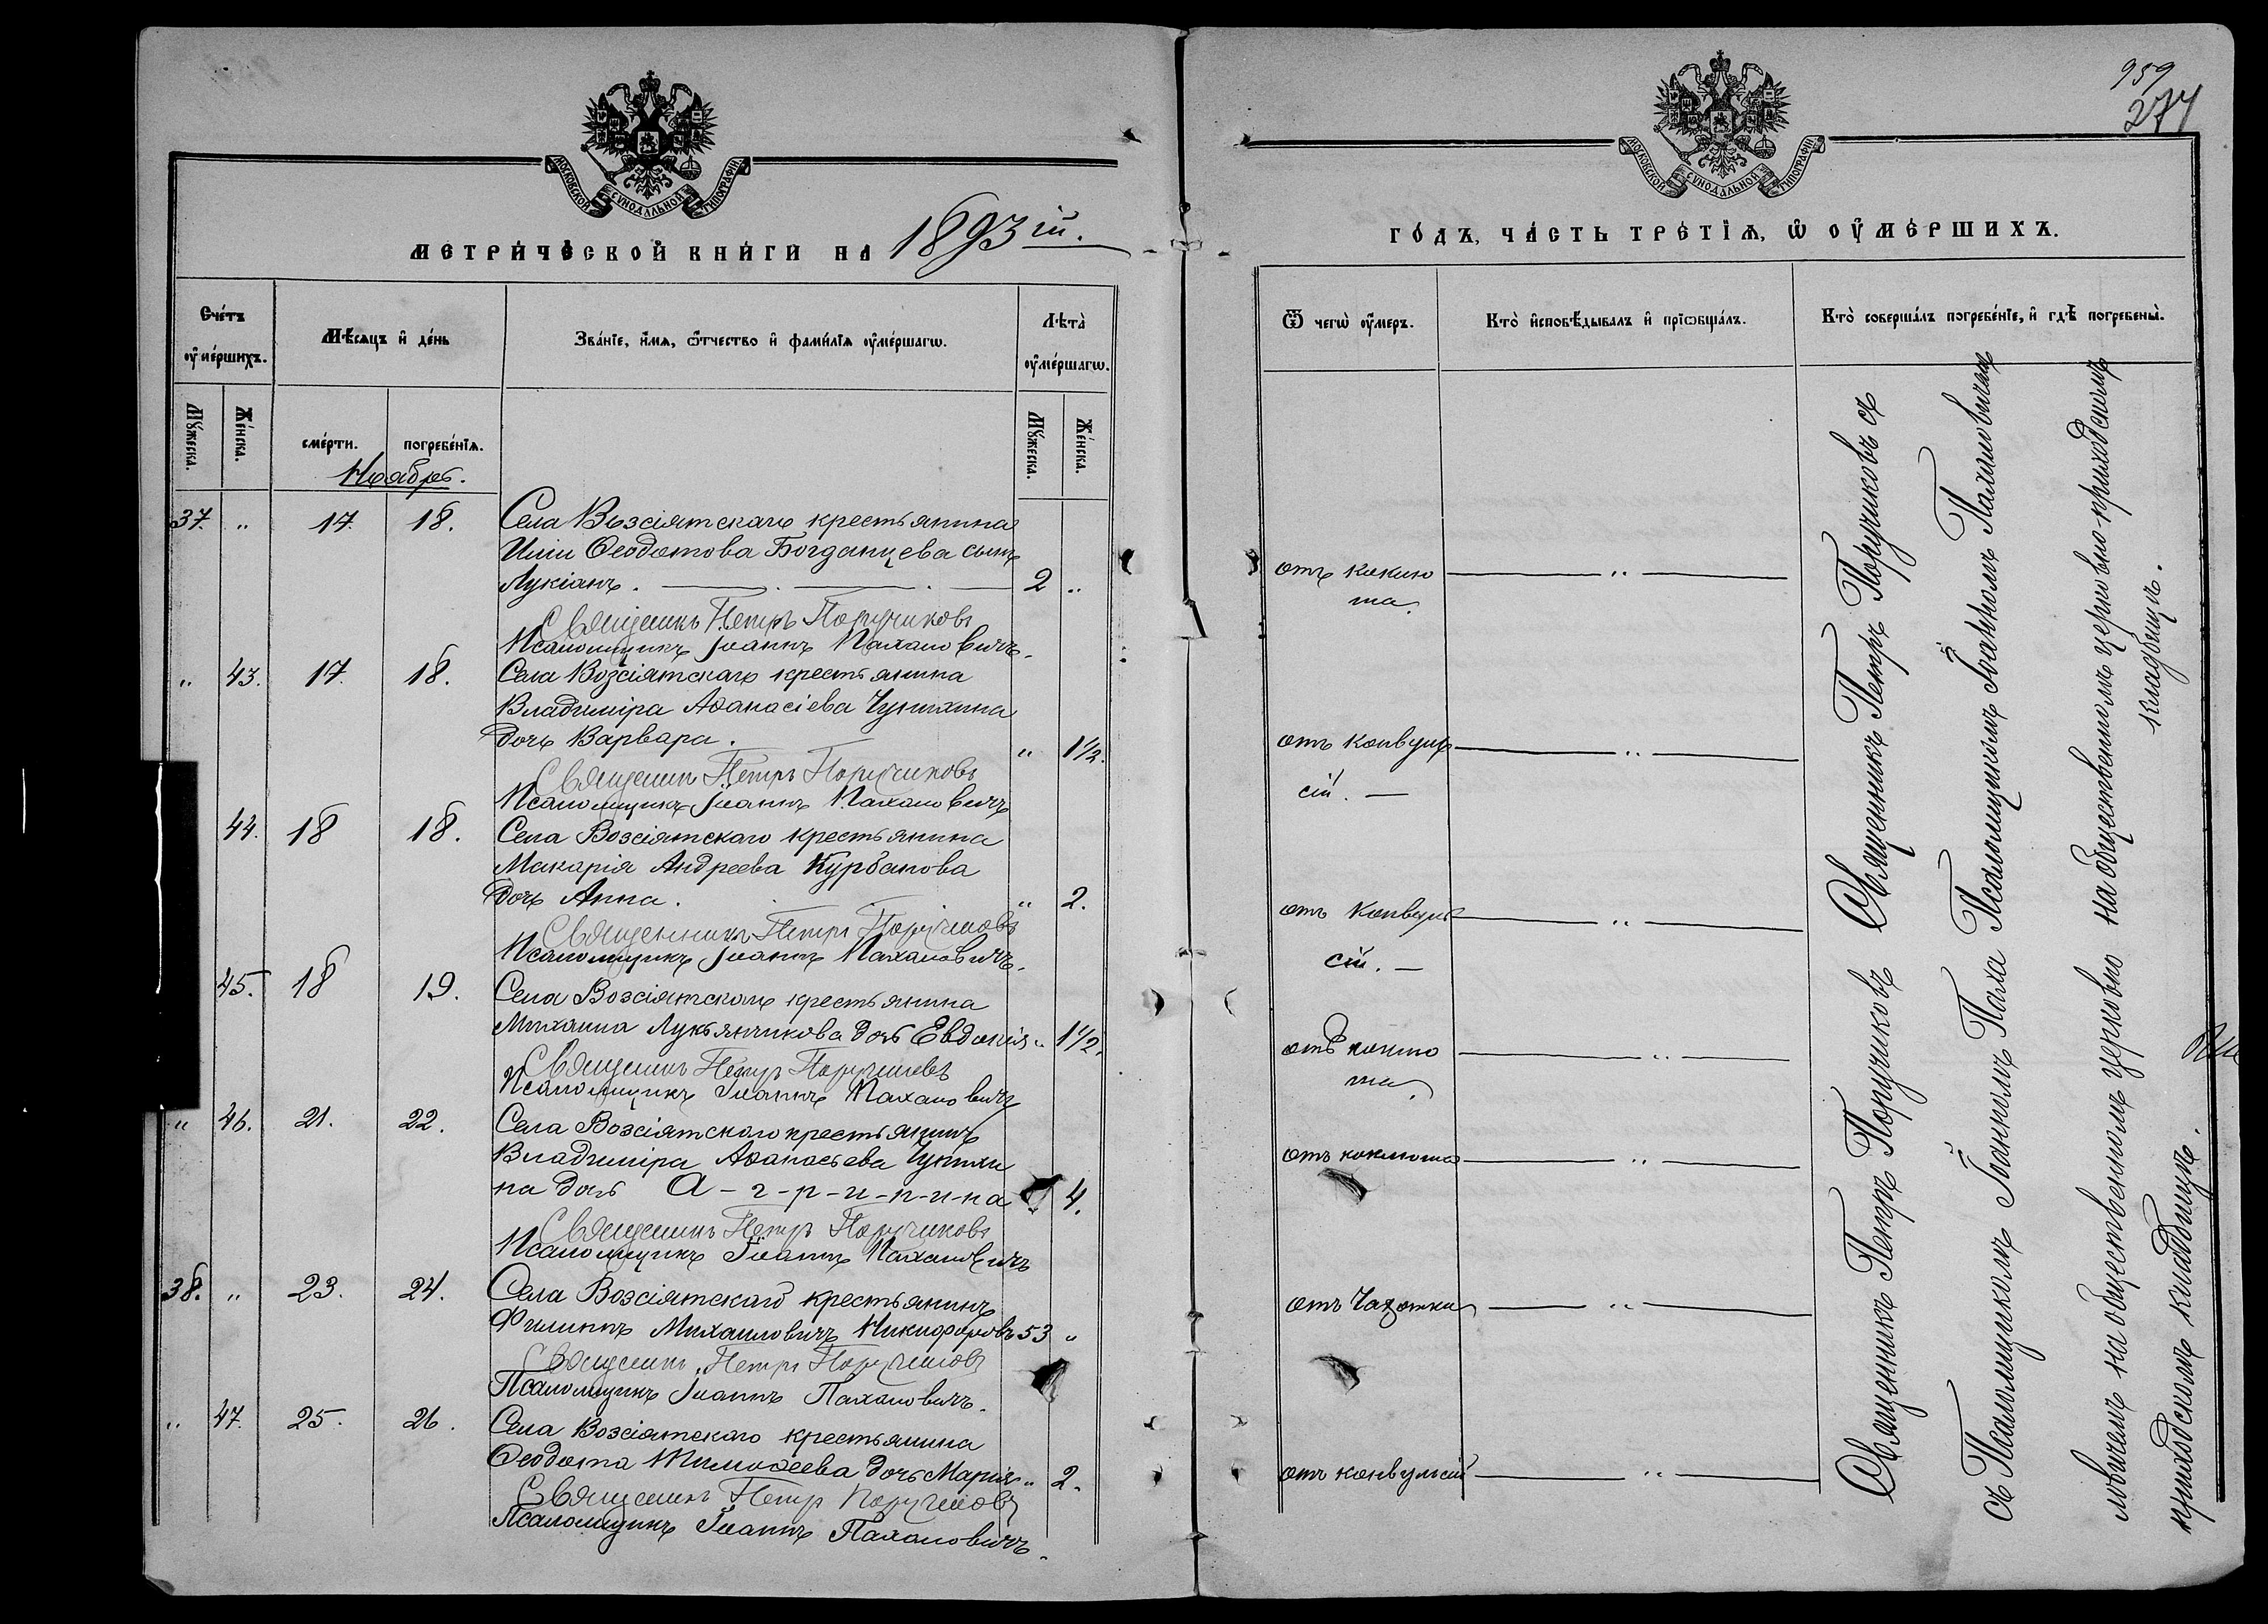 МОСКОВСКОЙ СѴНОДАЛЬНОЙ ТИПОГРАФІИ
МЕТРИ́ЧЕСКОЙ КНИ́ГИ НА 1893 ій.
Сче́тъ оу҆ме́ршихъ.
Мꙋ́жеска.
Же́нска.
Мѣ́сяцъ и҆ де́нь
сме́рти.
погребе́нїѧ.
Зва́нїе, и҆́мѧ, ѻ҆́тчество и҆ фами́лїѧ оу҆ме́ршагѡ.
Лѣ́та̀ оу҆ме́ршагѡ.
Мꙋ́жеска.
Же́нска.
Ноябрь.
37. " 17. 18. Села Возсіятскаго крестьянина
Иліи Ѳеодотова Богданцева сынъ
Лукіанъ. 2 "
Священникъ Петръ Поручиковъ
Псаломщикъ Іоаннъ Пахаловичъ.
" 43. 17. 18. Села Возсіятскаго крестьянина
Владиміра Аѳанасіева Чунихина
дочь Варвара. " 1½.
Священникъ Петръ Поручиковъ
Псаломщикъ Іоаннъ Пахаловичъ
44. 18 18. Села Возсіятскаго крестьянина
Макарія Андреева Курбанова
дочь Анна. " 2.
Священникъ Петръ Поручиковъ
Псаломщикъ Іоаннъ Пахаловичъ.
45. 18 19. Села Возсіятскаго крестьянина
Михаила Лукьянчикова дочь Евдокія " 1½.
Священникъ Петръ Поручиковъ
Псаломщикъ Іоаннъ Пахаловичъ
" 46. 21. 22. Села Возсіятскаго крестьянинъ
Владиміра Аѳанасьева Чунихи
на дочь А-г-р-и-п-и-на 4.
Священникъ Петръ Поручиковъ
Псаломщикъ Іоаннъ Пахаловичъ
38. " 23. 24. Села Возсіятскаго крестьянинъ
Филиппъ Михаиловичъ Никифоровъ 53 "
Священникъ Петръ Поручиковъ
Псаломщикъ Іоаннъ Пахаловичъ.
" 47. 25. 26. Села Возсіятскаго крестьянина
Ѳеодота Тимоѳеева дочь Марія " 2.
Священникъ Петръ Поручиковъ
Псаломщикъ Іоаннъ Пахаловичъ.
959
274
МОСКОВСКОЙ СѴНОДАЛЬНОЙ ТИПОГРАФІИ
ГО́ДЪ, ЧА́СТЬ ТРЕ́ТЇѦ, Ѡ҆ ОУ҆МЕ́РШИХЪ.
Ѿ чегѡ̀ оу҆́меръ.
Кто̀ и҆сповѣ́дывалъ и҆ прїѡбща́лъ.
Кто̀ соверша́лъ погребе́нїе, и҆ гдѣ̀ погребены̀.
отъ коклю "
ша.
отъ конвуль "
сій.
отъ конвуль "
сій.
отъ коклю "
ша.
отъ коклюша "
отъ чахотки "
отъ конвульсій "
Священникъ Петръ Поручиковъ съ
Псаломщикомъ Іоанномъ Пахаловичемъ
на общественномъ церковно-приходскомъ
кладбищѣ.
Священникъ Петръ Поручиковъ
съ Псаломщикомъ Іоанномъ Паха
ловичемъ на общественномъ церковно
приходскомъ кладбищѣ.